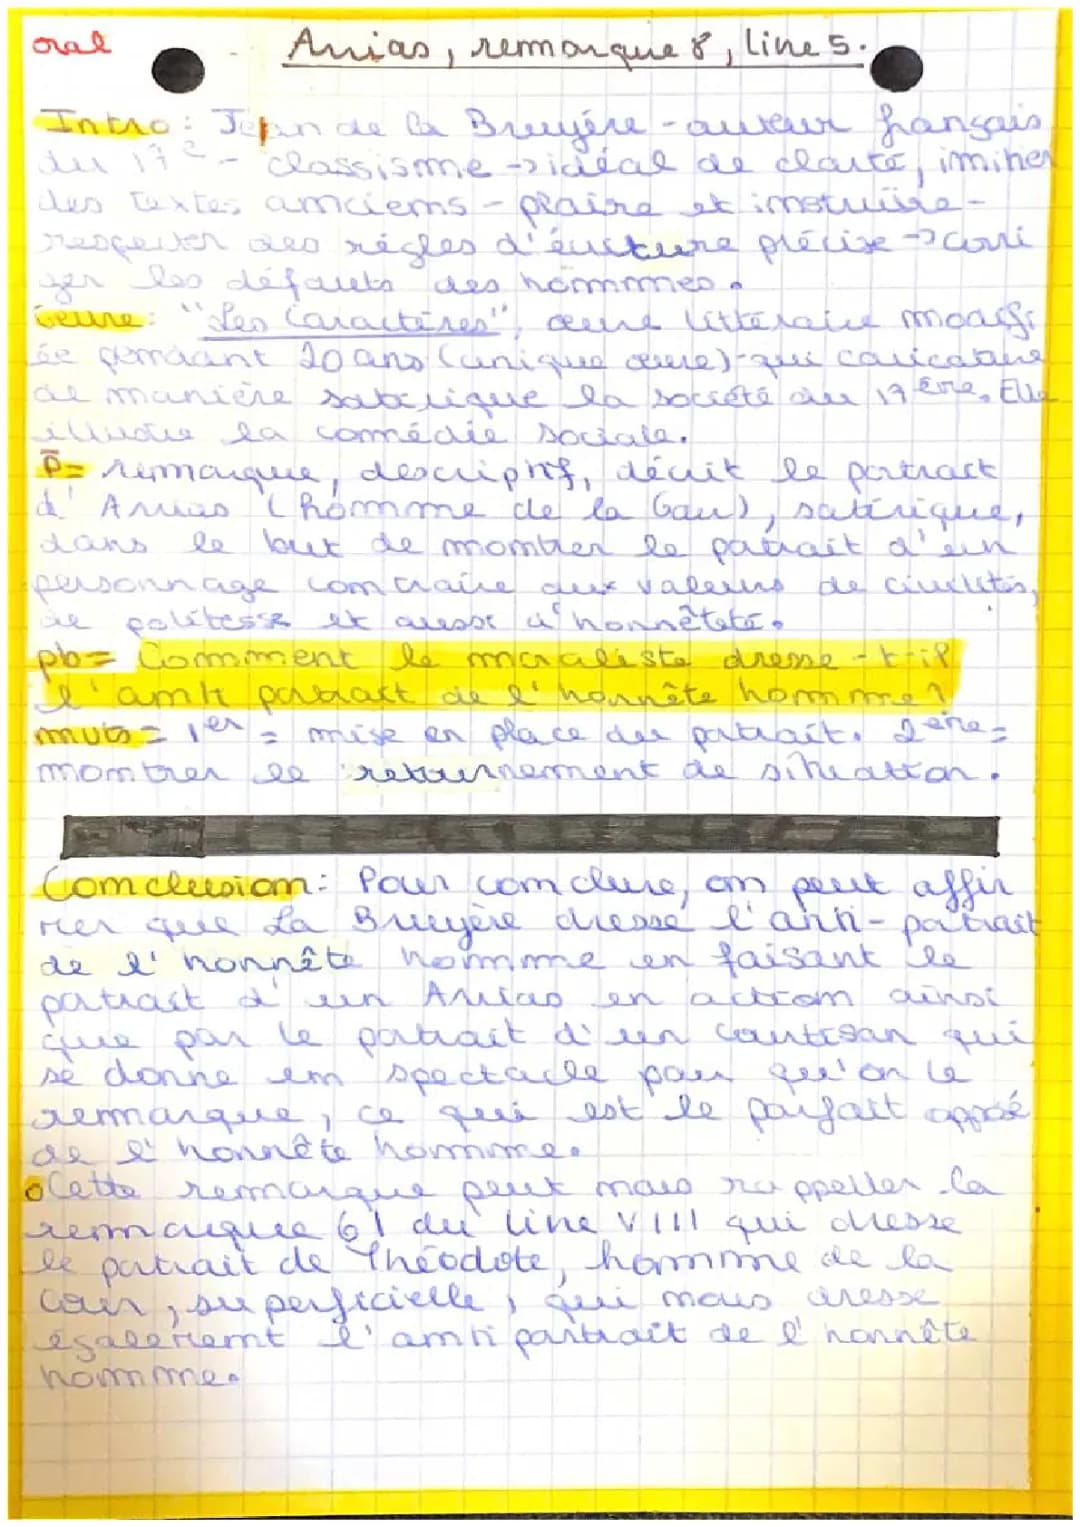 oral
Arrias, remarque 8, livre 5.
Intro: Jean de la Bruyére - auteur français
du 17e - classisme -> idéal de clarté, imiter
des textes anciens - plaire et instruire -
respecter des régles d'écriture précise -> corri
ger les défauts des hommes.
Œuvre: "Les Caractères", œuvre littéraire modifi
ée pendant 20 ans (unique œuvre) - qui caricature
de manière satirique la société du 17ème. Elle
illustre la comédie sociale.
p= remarque, descriptif, décrit le portrait
d'Arrias (homme de la Cour), satirique,
dans le but de montrer le portrait d'un
personnage contraire aux valeurs de civilités,
de politesse et aussi d'honnêteté.
pb= Comment le moraliste dresse-t-il
l'anti portrait de l'honnête homme?
mvts= 1er = mise en place du portrait. 2ème=
montrer le retournement de situation.
Conclusion: Pour conclure, on peut affir
mer que La Bruyère dresse l'anti-portrait
de l'honnête homme en faisant le
portrait d'un Arrias en action ainsi
que par le portrait d'un courtisan qui
se donne en spectacle pour qu'on le
remarque, ce qui est le parfait opposé
de l'honnête homme.
Cette remarque peut nous rappeller la
remarque 61 du livre VIII qui dresse
le portrait de Théodote, homme de la
cour, superficielle, qui nous dresse
également l'anti portrait de l'honnête
homme.